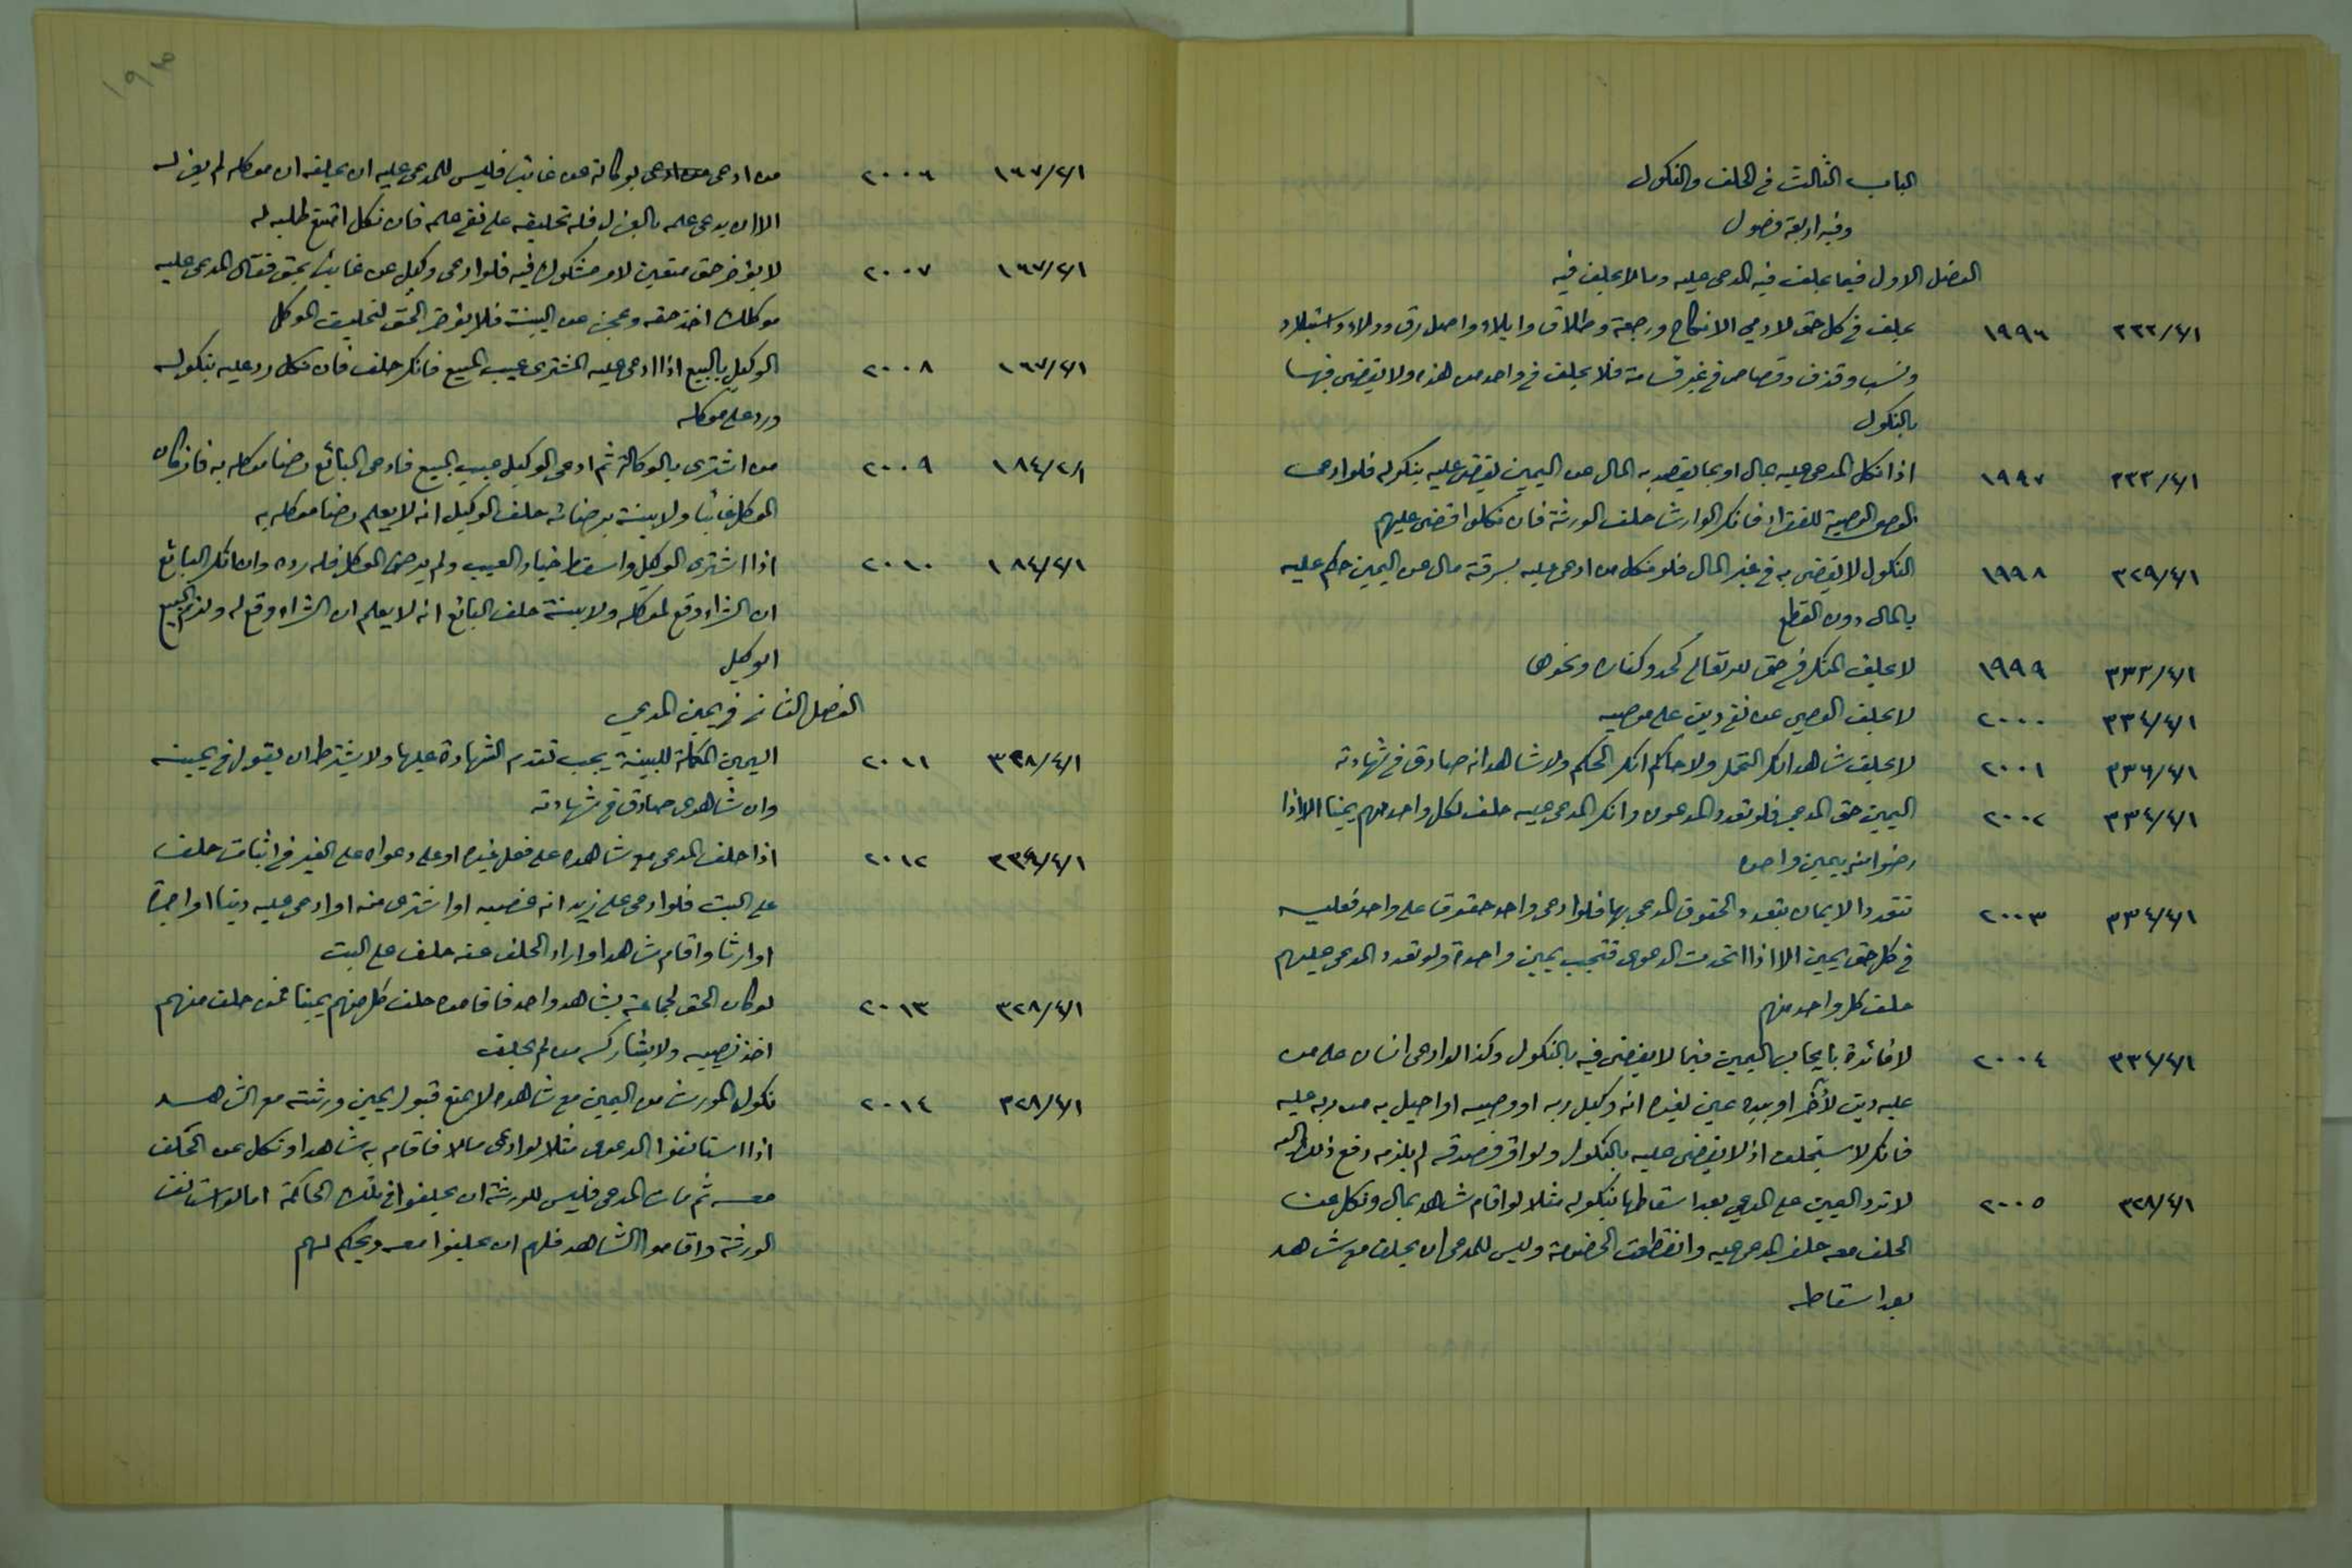 الباب الثالث في الحلف والنكول
وفيه اربعة فصول
الفصل الاول فيما يحلف فيه المدعى عليه وما لا يحلف فيه
٣٣٢/٤/١ ١٩٩٦ يحلف في كل حق لادمي الا نكاح ورجعة وطلاق وايلاء واصل رق وولاء واستيلاد
ونسب وقذف وقصاص في غير قسامة فلا يحلف في واحد من هذه ولا يقضى فيها
بالنكول
٣٣٣/٤/١ ١٩٩٧ اذا نكل المدعى عليه بمال او بما يقصد به المال عن اليمين يقضى عليه بنكوله فلو ادعى
الوصي الوصية للفقراء فانكر الوارث حلف الورثة فان نكلوا قضى عليهم
٣٢٩/٤/١ ١٩٩٨ النكول لا يقضى به في غير المال فلو نكل من ادعى عليه بسرقة مال عن اليمين حكم عليه
بالمال دون القطع
٣٣٣/٤/١ ١٩٩٩ لا يحلف المنكر في حق لله تعالى كحد وكفارة ونحوها
٣٣٤/٤/١ ٢٠٠٠ لا يحلف الوصي على نفي دين على موصيه
٣٣٦/٤/١ ٢٠٠١ لا يحلف شاهد انكر التحمل ولا حاكم انكر الحكم ولا شاهد انه صادق في شهادته
٣٣٤/٤/١ ٢٠٠٢ اليمين حق المدعي فلو تعدد المدعون وانكر المدعى عليه حلف لكل واحد منهم يمينا الا اذا
رضوا منه بيمين واحده
٣٣٤/٤/١ ٢٠٠٣ تتعدد الايمان بتعدد الحقوق المدعى بها فلو ادعى واحد حقوقا على واحد فعليه
في كل حق يمين الا اذا اتحدت الدعوى فتجب يمين واحدة ولو تعدد المدعى عليهم
حلف كل واحد منهم
٣٣٤/٤/١ ٢٠٠٤ لا فائدة بايجاب اليمين فيما لا يقضى فيه بالنكول وكذا لو ادعى انسان على من
عليه دين لآخر او بيده عين لغيره انه وكيل ربه او وصيه او احيل به من ربه عليه
فانكر لا يستحلف اذ لا يقضى عليه بالنكول ولو اقر فصدقه لم يلزمه دفع ذلك اليه
٣٢٨/٤/١ ٢٠٠٥ لا ترد اليمين على المدعي بعد اسقاطها بنكوله مثلا لو اقام شاهد بمال ونكل عن
الحلف معه حلف المدعى عليه وانقطعت الخصومة وليس للمدعى ان يحلف مع شاهد
بعد اسقاطه
١٩٣
١٦٧/٢/١ ٢٠٠٦ من ادعى بوكالة عن غائب فليس للمدعى عليه ان يحلفه ان موكله لم يعزله
الا ان يدعى علمه بالعزل فله تحليفه على نفي علمه فان نكل امتنع طلبه له
١٦٧/٢/١ ٢٠٠٧ لا يؤخر حق متيقن لامر مشكوك فيه فلو ادعى وكيل عن غائب بحق فقال المدعى عليه
موكلك اخذ حقه وعجز عن البينة فلا يؤخر الحق لتحليف الموكل
١٦٧/٢/١ ٢٠٠٨ الوكيل بالبيع اذا ادعى عليه المشتري عيب المبيع فانكر حلف فان نكل رد عليه بنكوله
ورد على موكله
١٨٤/٢/١ ٢٠٠٩ من اشترى بالوكالة ثم ادعى الوكيل عيب المبيع فادعى البائع رضا موكله به فان كان
الموكل غائبا ولا بينة برضائه حلف الوكيل انه لا يعلم رضا موكله به
١٨٤/٢/١ ٢٠١٠ اذا اشترى الوكيل واسقط خيار العيب ولم يرض الموكل فله رده وان انكر البائع
ان الشراء وقع لموكله ولا بينة حلف البائع انه لا يعلم ان الشراء وقع له ولزم المبيع
الوكيل
الفصل الثاني في يمين المدعي
٣٢٨/٤/١ ٢٠١١ اليمين المكملة للبينة يجب تقدم الشهادة عليها ولا يشترط ان يقول في يمينه
وان شاهدى صادق في شهادته
٣٣٤/٤/١ ٢٠١٢ اذا حلف المدعى مع شاهده على فعل غيره او على دعواه على الغير في اثبات حلف
على البت فلو ادعى على زيد انه غصبه او اشترى منه او ادعى عليه دينا او اجرة
او ارثا واقام شاهدا واراد الحلف معه حلف على البت
٣٢٨/٤/١ ٢٠١٣ لو كان الحق لجماعة بشاهد واحد فاقاموه حلف كل منهم يمينا فمن حلف منهم
اخذ نصيبه ولا يشاركه من لم يحلف
٣٢٨/٤/١ ٢٠١٤ نكول المورث عن اليمين مع شاهده لا يمنع قبول يمين ورثته مع الشاهد
اذا استانفوا الدعوى مثلا لو ادعى مالا فاقام به شاهدا ونكل عن الحلف
معه ثم مات المدعى فليس للورثة ان يحلفوا في تلك المحاكمة اما لو استانف
الورثة واقاموا الشاهد فلهم ان يحلفوا معه ويحكم لهم